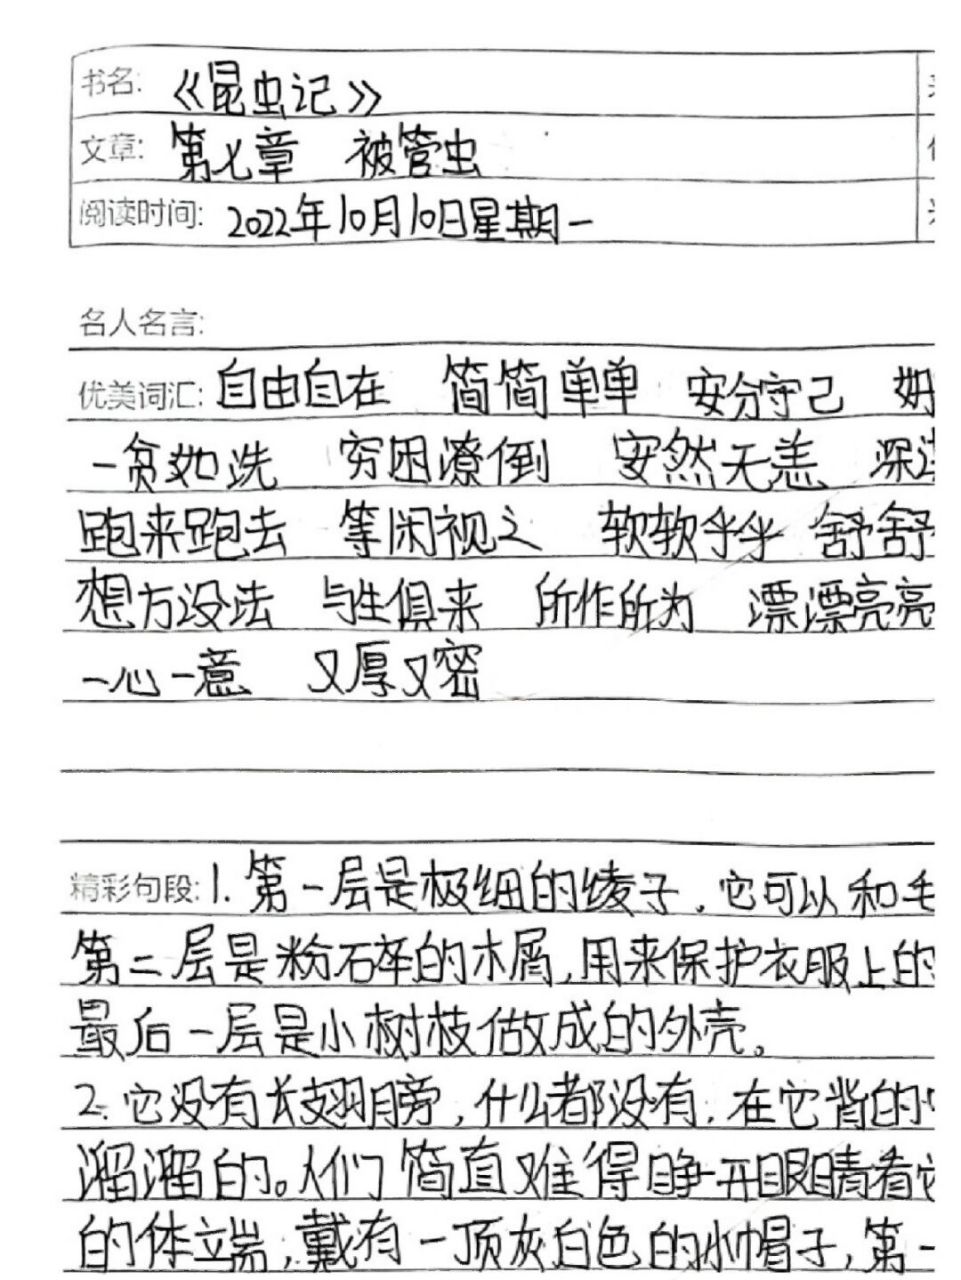 书名: 《昆虫记》
文章: 第七章 被管虫
阅读时间: 2022年10月10日星期一
名人名言:
优美词汇: 自由自在 简简单单 安分守己
一贫如洗 穷困潦倒 安然无恙 深
跑来跑去 等闲视之 软软乎乎 舒舒
想方设法 与生俱来 所作所为 漂漂亮亮
一心一意 又厚又密
精彩句段: 1. 第一层是极细的绫子,它可以和毛
第二层是粉碎的木屑,用来保护衣服上的
最后一层是小树枝做成的外壳。
2. 它没有长翅膀,什么都没有,在它背的
溜溜的。人们简直难得睁开眼睛看它
的体端,戴有一顶灰白色的小帽子,第一